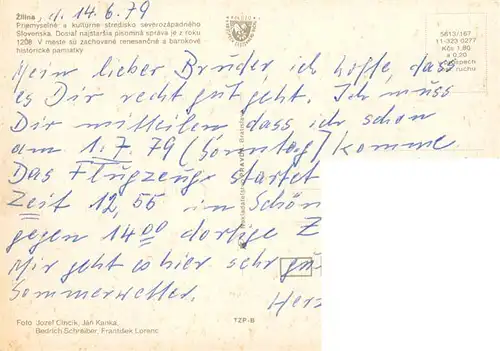 Žilina, d. 14.6.79
Priemyselné a kultúrne stredisko severozápadného
Slovenska. Dosiaľ najstaršia písomná správa je z roku
1208. V meste sú zachované renesančné a barokové
historické pamiatky
5613/167
11-323 0277
Kčs 1,80
a 0,20
ruchu
Mein lieber Bruder ich hoffe, dass
es Dir recht gut geht. Ich muss
Dir mitteilen dass ich schon
am 1.7.79 (Sonntag) komme
Das Flugzeuge startet
Zeit 12,55 im Schön
gegen 14 00 dortige Z
Mir geht es hier sehr gu
Sommerwetter.
Herz
Foto Jozef Cincík, Ján Kanka,
Bedrich Schreiber, František Lorenc
TZP-B